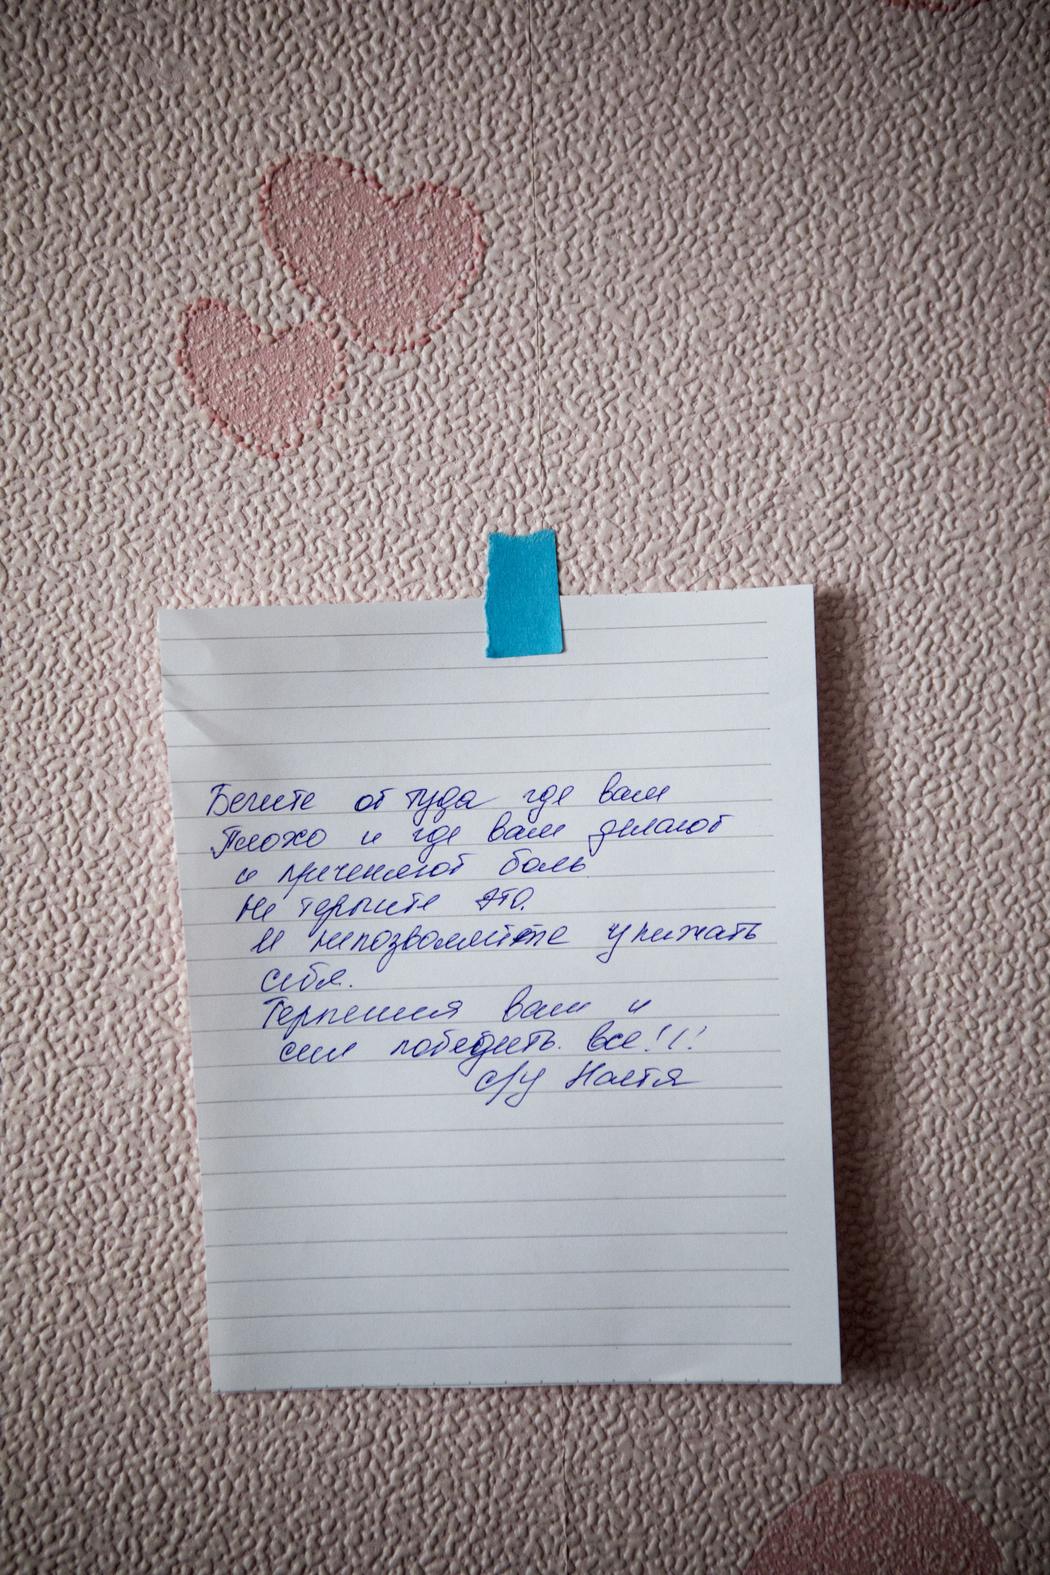 Бегите от туда где вам
Плохо и где вам делают
и причиняют боль
Не терпите это.
И непозволяйте унижать
себя.
Терпения вам и
сил победить все!!!
с/у Настя